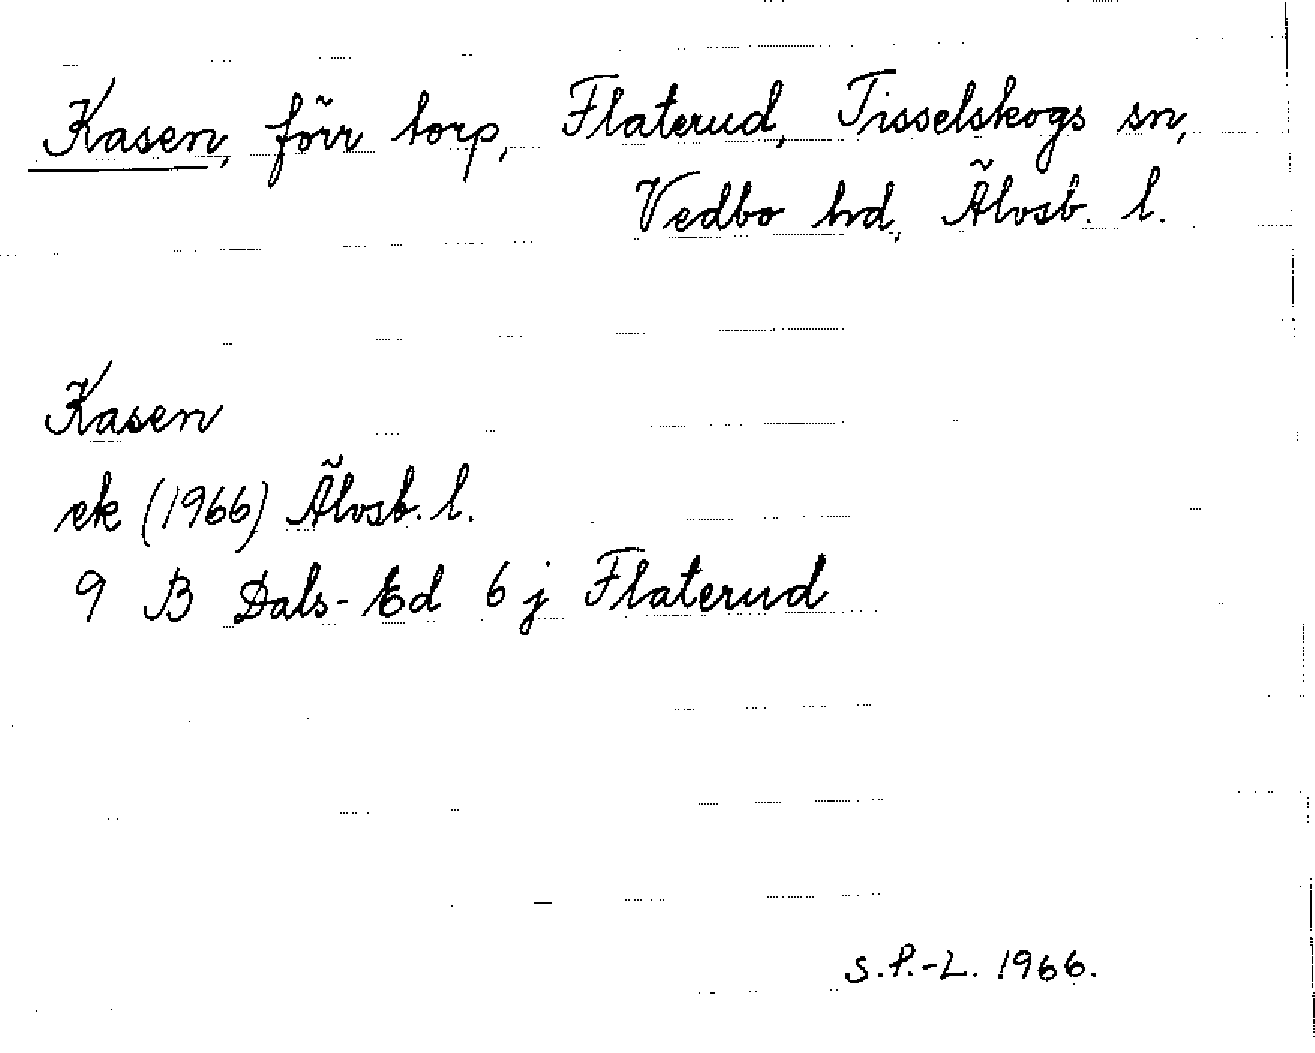 Kasen, förr torp, Flaterud, Tisselskogs sn,
Vedbo hd, Älvsb. l.
Kasen
ek (1966) Älvsb. l.
9 B Dals-Ed 6 j Flaterud
S.P.-L. 1966.